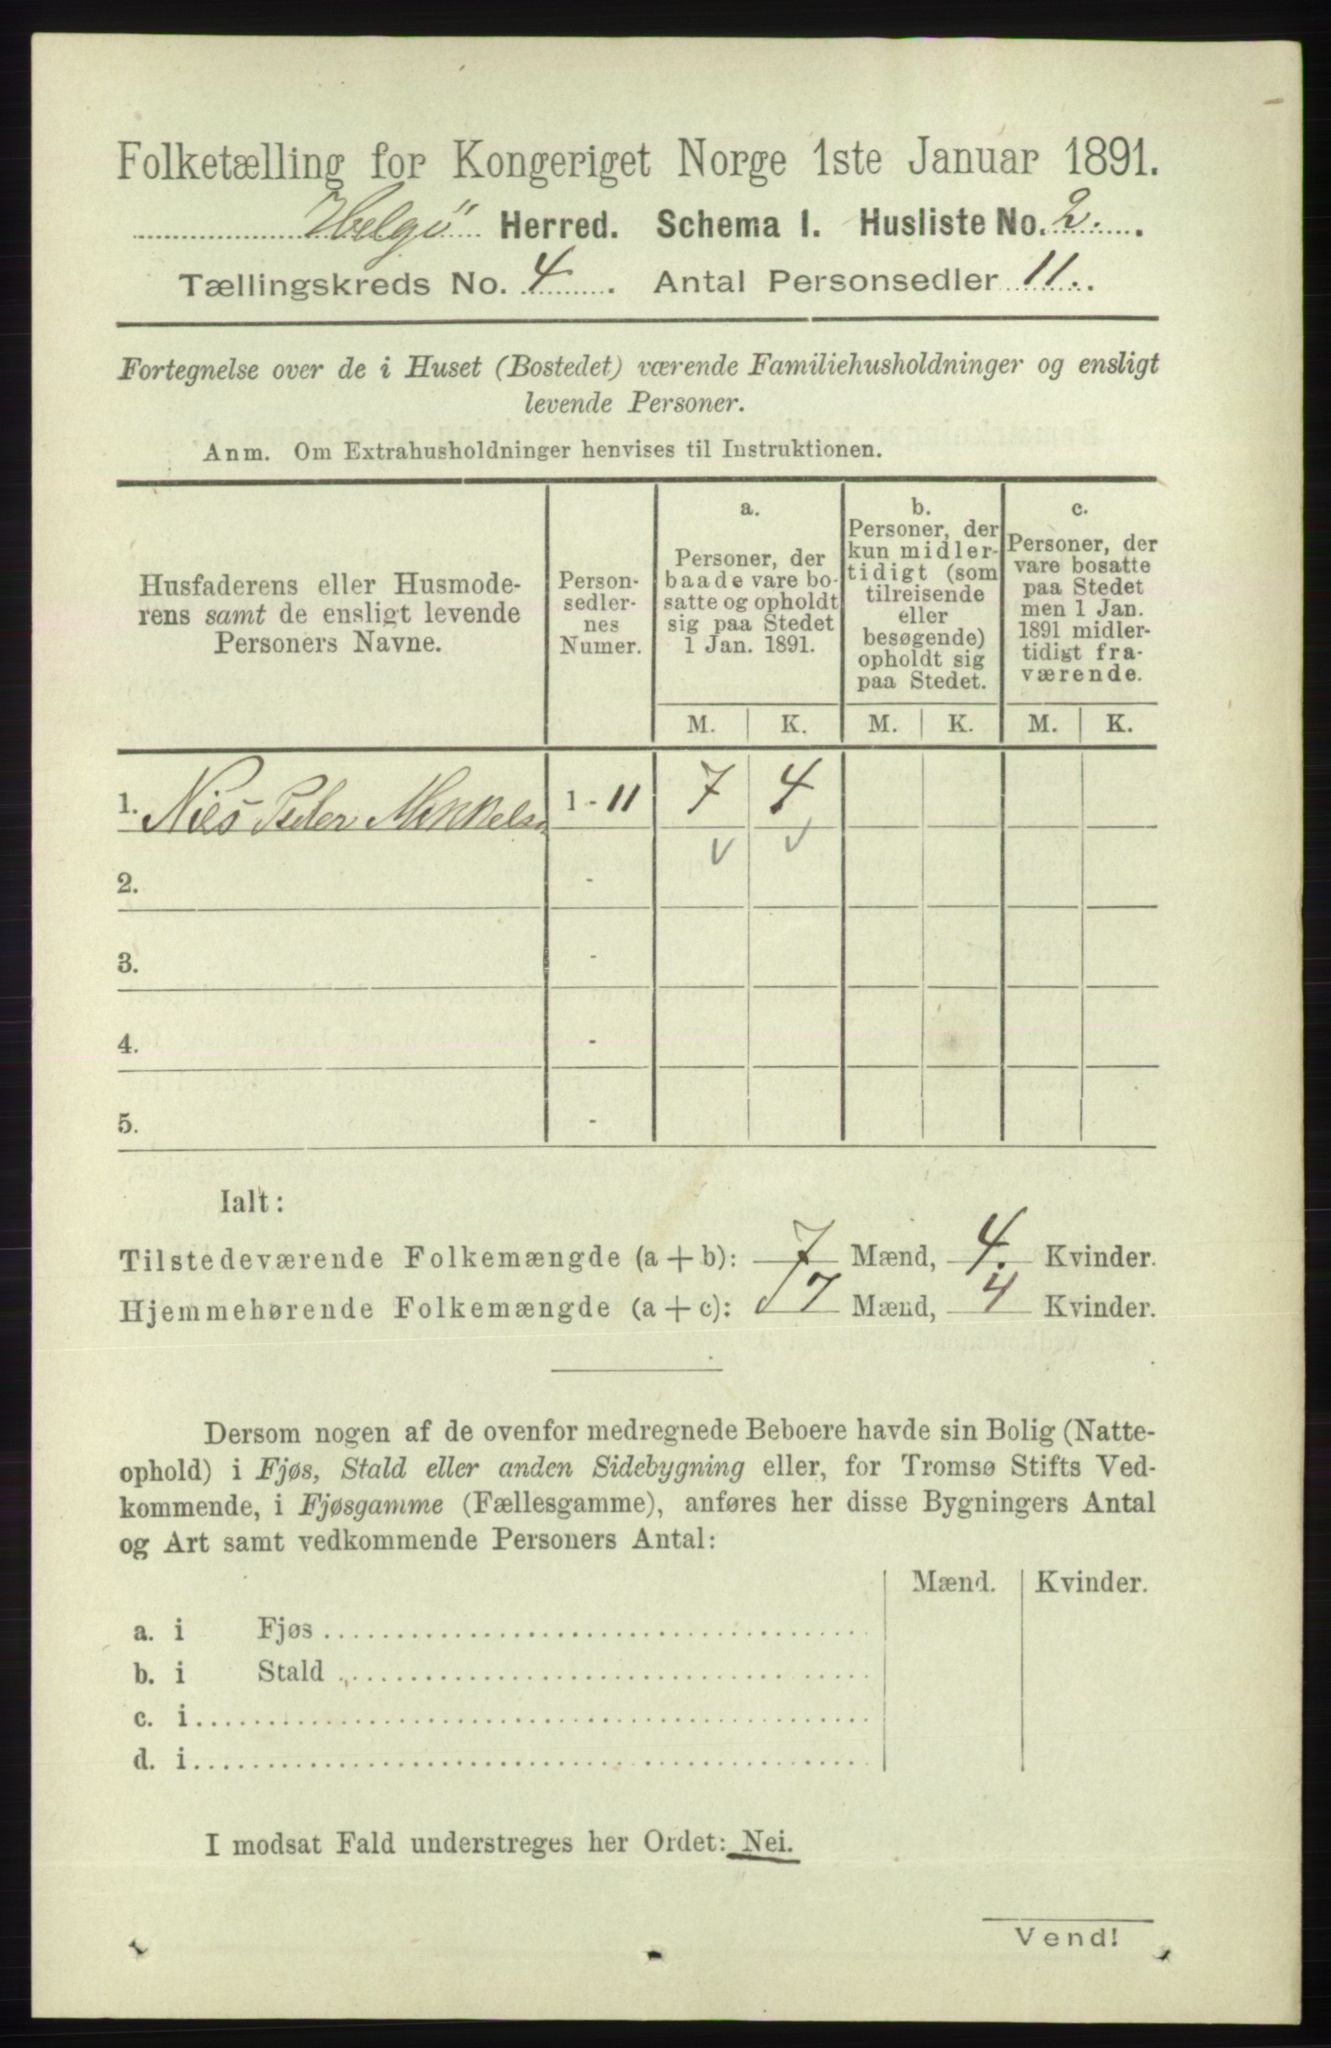 Folketælling for Kongeriget Norge 1ste Januar 1891.
Helgö Herred. Schema I. Husliste No. 2.
Tællingskreds No. 4. Antal Personsedler 11.
Fortegnelse over de i Huset (Bostedet) værende Familiehusholdninger og ensligt
levende Personer.
Anm. Om Extrahusholdninger henvises til Instruktionen.
Husfaderens eller Husmode-
rens samt de ensligt levende
Personers Navne.
Person-
sedler-
nes
Numer.
a.
Personer, der
baade vare bo-
satte og opholdt
sig paa Stedet
1 Jan. 1891.
b.
Personer, der
kun midler-
tidigt (som
tilreisende
eller
besøgende)
opholdt sig
paa Stedet.
c.
Personer, der
vare bosatte
paa Stedet
men 1 Jan.
1891 midler-
tidigt fra-
værende.
M. K. M. K. M. K.
1. Nils Peder Mikkelsen 1 - 11 7 4
2. -
3. -
4. -
5. -
Ialt:
Tilstedeværende Folkemængde (a + b): 7 Mænd, 4. Kvinder.
Hjemmehørende Folkemængde (a + c): 7 Mænd, 4 Kvinder.
Dersom nogen af de ovenfor medregnede Beboere havde sin Bolig (Natte-
ophold) i Fjøs, Stald eller anden Sidebygning eller, for Tromsø Stifts Ved-
kommende, i Fjøsgamme (Fællesgamme), anføres her disse Bygningers Antal
og Art samt vedkommende Personers Antal:
Mænd. Kvinder.
a. i Fjøs
b. i Stald
c. i
d. i
I modsat Fald understreges her Ordet: Nei.
Vend!